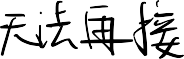 无法再接